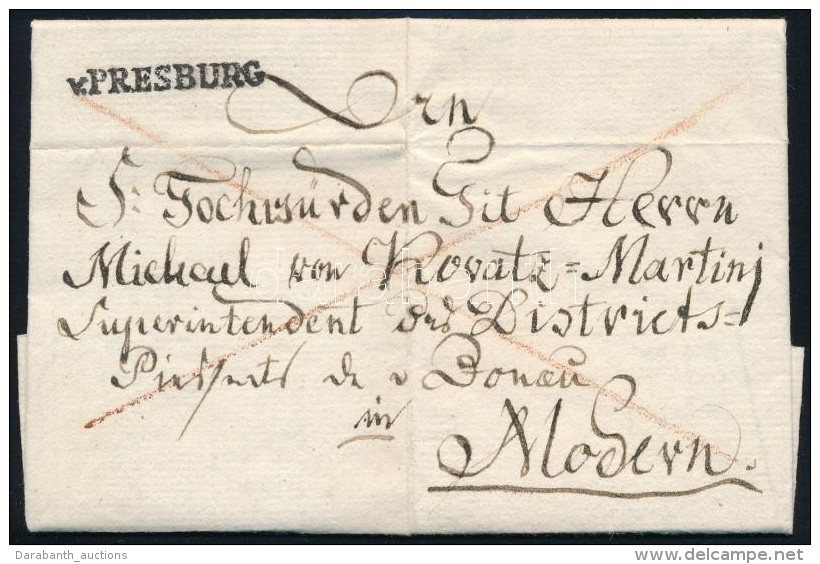 v.PRESBURG
Srn
S: Hochwürden Tit Herrn
Michael von Kovatz=Martinj
Superintendent des Districts=
Diesseits der Donau
in
Modern.
Darabanth_auctions
www.delcampe.net